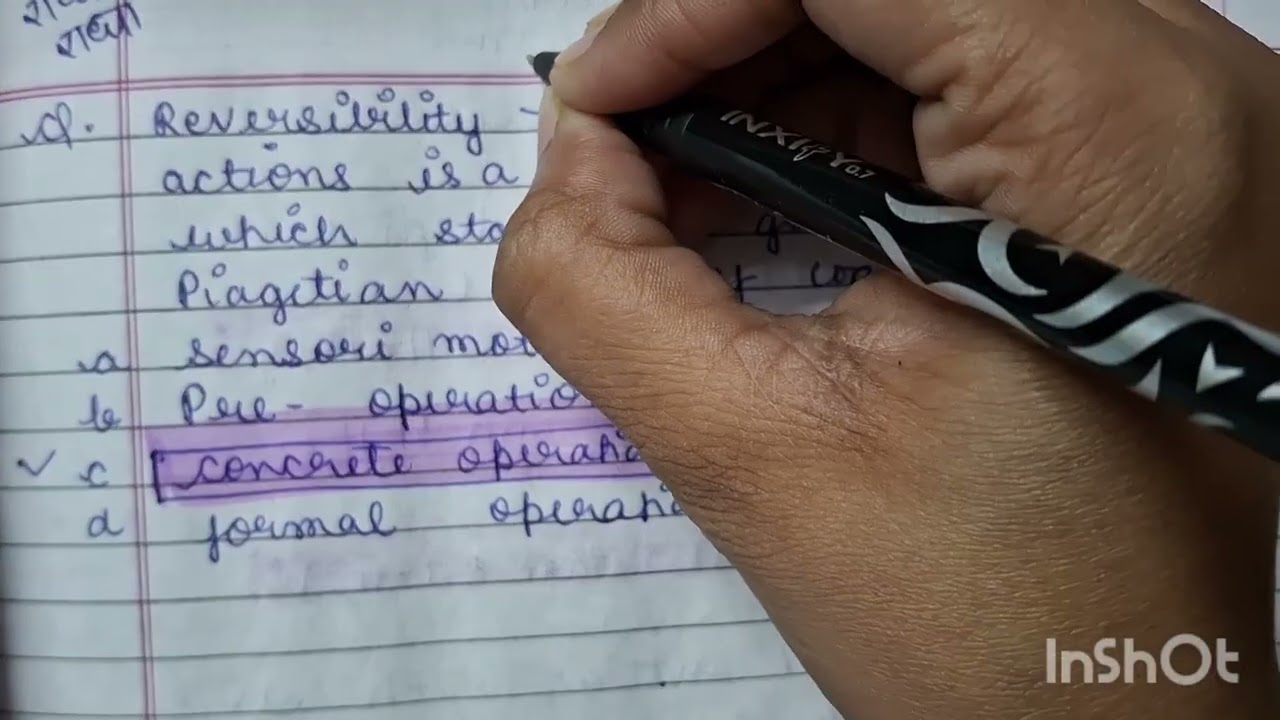 Q. Reversibility -
actions is a
which sta
Piagetian
a sensori mot
b Pre- operatio
✓ c concrete operatio
d formal operatio
INXIFY 0.7
InShOt